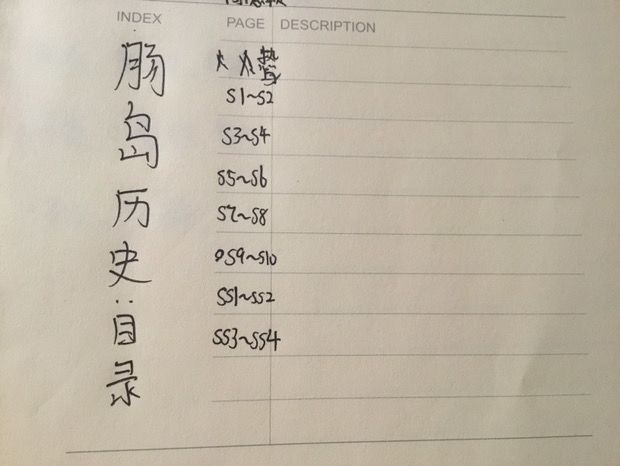 INDEX PAGE DESCRIPTION
肠岛历史：目录
S1~S2
S3~S4
S5~S6
S7~S8
S9~S10
SS1~SS2
SS3~SS4